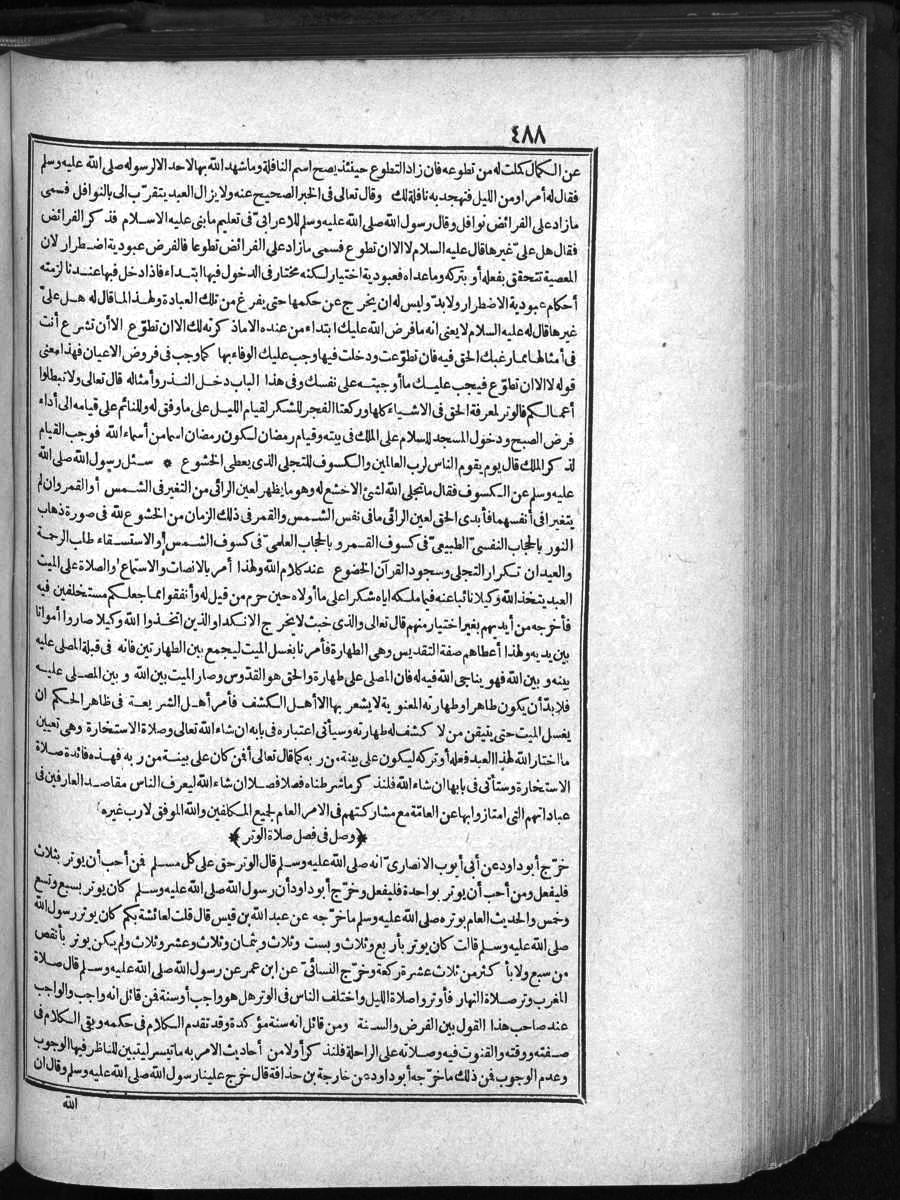 ٤٨٨
عن الكمال كملت له من تطوعه فان زاد التطوع حينئذ يصح اسم النافلة وما شهد الله بها لاحد الا لرسوله صلى الله عليه وسلم
فقال له أمرا ومن الليل فتهجد به نافلة لك وقال تعالى فى الخبر الصحيح عنه ولا يزال العبد يتقرّب الى بالنوافل فسمى
مازاد على الفرائض نوافل وقال رسول الله صلى الله عليه وسلم للاعرابىّ فى تعليم ما بنى عليه الاسلام فذكر الفرائض
فقال هل علىّ غيرها قال عليه السلام لا الا ان تطوع فسمى مازاد على الفرائض تطوعا فالفرض عبودية اضطرار لان
المعصية تتحقق بفعله أو بتركه وماعداه فعبودية اختيار لكنه مختار فى الدخول فيها ابتداء فاذا دخل فيها عندنا لزمته
أحكام عبودية الاضطرار ولابدّ وليس له ان يخرج عن حكمها حتى يفرغ من تلك العبادة ولهذا لما قال له هل علىّ
غيرها قال له عليه السلام لا يعنى انه ما فرض الله عليك ابتداء من عنده الا ما ذكرته لك الا ان تطوّع الا أن تشرع أنت
فى أمثالها مما رغبك الحق فيه فان تطوّعت ودخلت فيها وجب عليك الوفاء بها كما وجب فى فروض الاعيان فهذا معنى
قوله لا الا ان تطوّع فيجب عليك ما أوجبته على نفسك وفى هذا الباب دخل النذر وأمثاله قال تعالى ولا تبطلوا
أعمالكم فالوتر لمعرفة الحق فى الاشياء كلها وركعتا الفجر للشكر لقيام الليل على ما وفق له وللنائم على قيامه الى أداء
فرض الصبح ودخول المسجد للسلام على الملك فى بيته وقيام رمضان لكون رمضان اسما من أسماء الله فوجب القيام
لذكر الملك قال يوم يقوم الناس لرب العالمين والكسوف للتجلى الذى يعطى الخشوع * سئل رسول الله صلى الله
عليه وسلم عن الكسوف فقال ما تجلى الله لشئ الا خشع له وهو ما يظهر لعين الرائى من التغير فى الشمس أو القمر وان لم
يتغيرا فى أنفسهما فأبدى الحق لعين الرائى ما فى نفس الشمس والقمر فى ذلك الزمان من الخشوع لله فى صورة ذهاب
النور بالحجاب النفسىّ الطبيعىّ فى كسوف القمر وبالحجاب العلمىّ فى كسوف الشمس والاستسقاء طلب الرحمة
والعيدان تكرار التجلى وسجود القرآن الخضوع عند كلام الله ولهذا أمر بالانصات والاستماع والصلاة على الميت
العبد يتخذ الله وكيلا نائبا عنه فيما ملكه اياه شكرا على ما أولاه حين حرم من قيل له وأنفقوا مما جعلكم مستخلفين فيه
فأخرجه من أيديهم بغير اختيار منهم قال تعالى والذى خبث لا يخرج الا نكدا والذين اتخذوا الله وكيلا صاروا أمواتا
بين يديه ولهذا أعطاهم صفة التقديس وهى الطهارة فأمرنا بغسل الميت ليجمع بين الطهارتين فانه فى قبلة المصلى عليه
بينه وبين الله فهو يناجى الله فيه له فان المصلى على طهارة والحق هو القدّوس وصار الميت بين الله وبين المصلى عليه
فلابدّ أن يكون طاهرا وطهارته المعنوية لا يشعر بها الا أهل الكشف فأمر أهل الشريعة فى ظاهر الحكم ان
يغسل الميت حتى يتيقن من لا كشف له طهارته وسيأتى اعتباره فى بابه ان شاء الله تعالى وصلاة الاستخارة وهى تعيين
ما اختار الله لهذا العبد فعله أو تركه ليكون على بينة من ربه كما قال تعالى أفمن كان على بينة من ربه فهذه فائدة صلاة
الاستخارة وستأتى فى بابها ان شاء الله فلنذكر ما شرطناه فصلا فصلا ان شاء الله ليعرف الناس مقاصد العارفين فى
عباداتهم التى امتازوا بها عن العامّة مع مشاركتهم فى الامر العام لجميع المكلفين والله الموفق لا رب غيره
﴿وصل فى فصل صلاة الوتر﴾
خرّج أبو داود عن أبى أيوب الانصارىّ انه صلى الله عليه وسلم قال الوتر حق على كل مسلم فمن أحب أن يوتر بثلاث
فليفعل ومن أحب أن يوتر بواحدة فليفعل وخرّج أبو داود أن رسول الله صلى الله عليه وسلم كان يوتر بسبع وتسع
وخمس والحديث العام بوتره صلى الله عليه وسلم ما خرّجه عن عبد الله بن قيس قال قلت لعائشة بكم كان يوتر رسول الله
صلى الله عليه وسلم قالت كان يوتر بأربع وثلاث وبست وثلاث وبثمان وثلاث وعشر وثلاث ولم يكن يوتر بأنقص
من سبع ولا بأكثر من ثلاث عشرة ركعة وخرّج النسائىّ عن ابن عمر عن رسول الله صلى الله عليه وسلم قال صلاة
المغرب وتر صلاة النهار فأوتروا صلاة الليل واختلف الناس فى الوتر هل هو واجب أو سنة فمن قائل انه واجب والواجب
عند صاحب هذا القول بين الفرض والسنة ومن قائل انه سنة مؤكدة وقد تقدم الكلام فى حكمه وبقى الكلام فى
صفته ووقته والقنوت فيه وصلاته على الراحلة فلنذكر أولا من أحاديث الامر به ما تيسر ليتبين للناظر فيها الوجوب
وعدم الوجوب فمن ذلك ما خرّجه أبو داود عن خارجة بن حذافة قال خرج علينا رسول الله صلى الله عليه وسلم وقال ان
الله